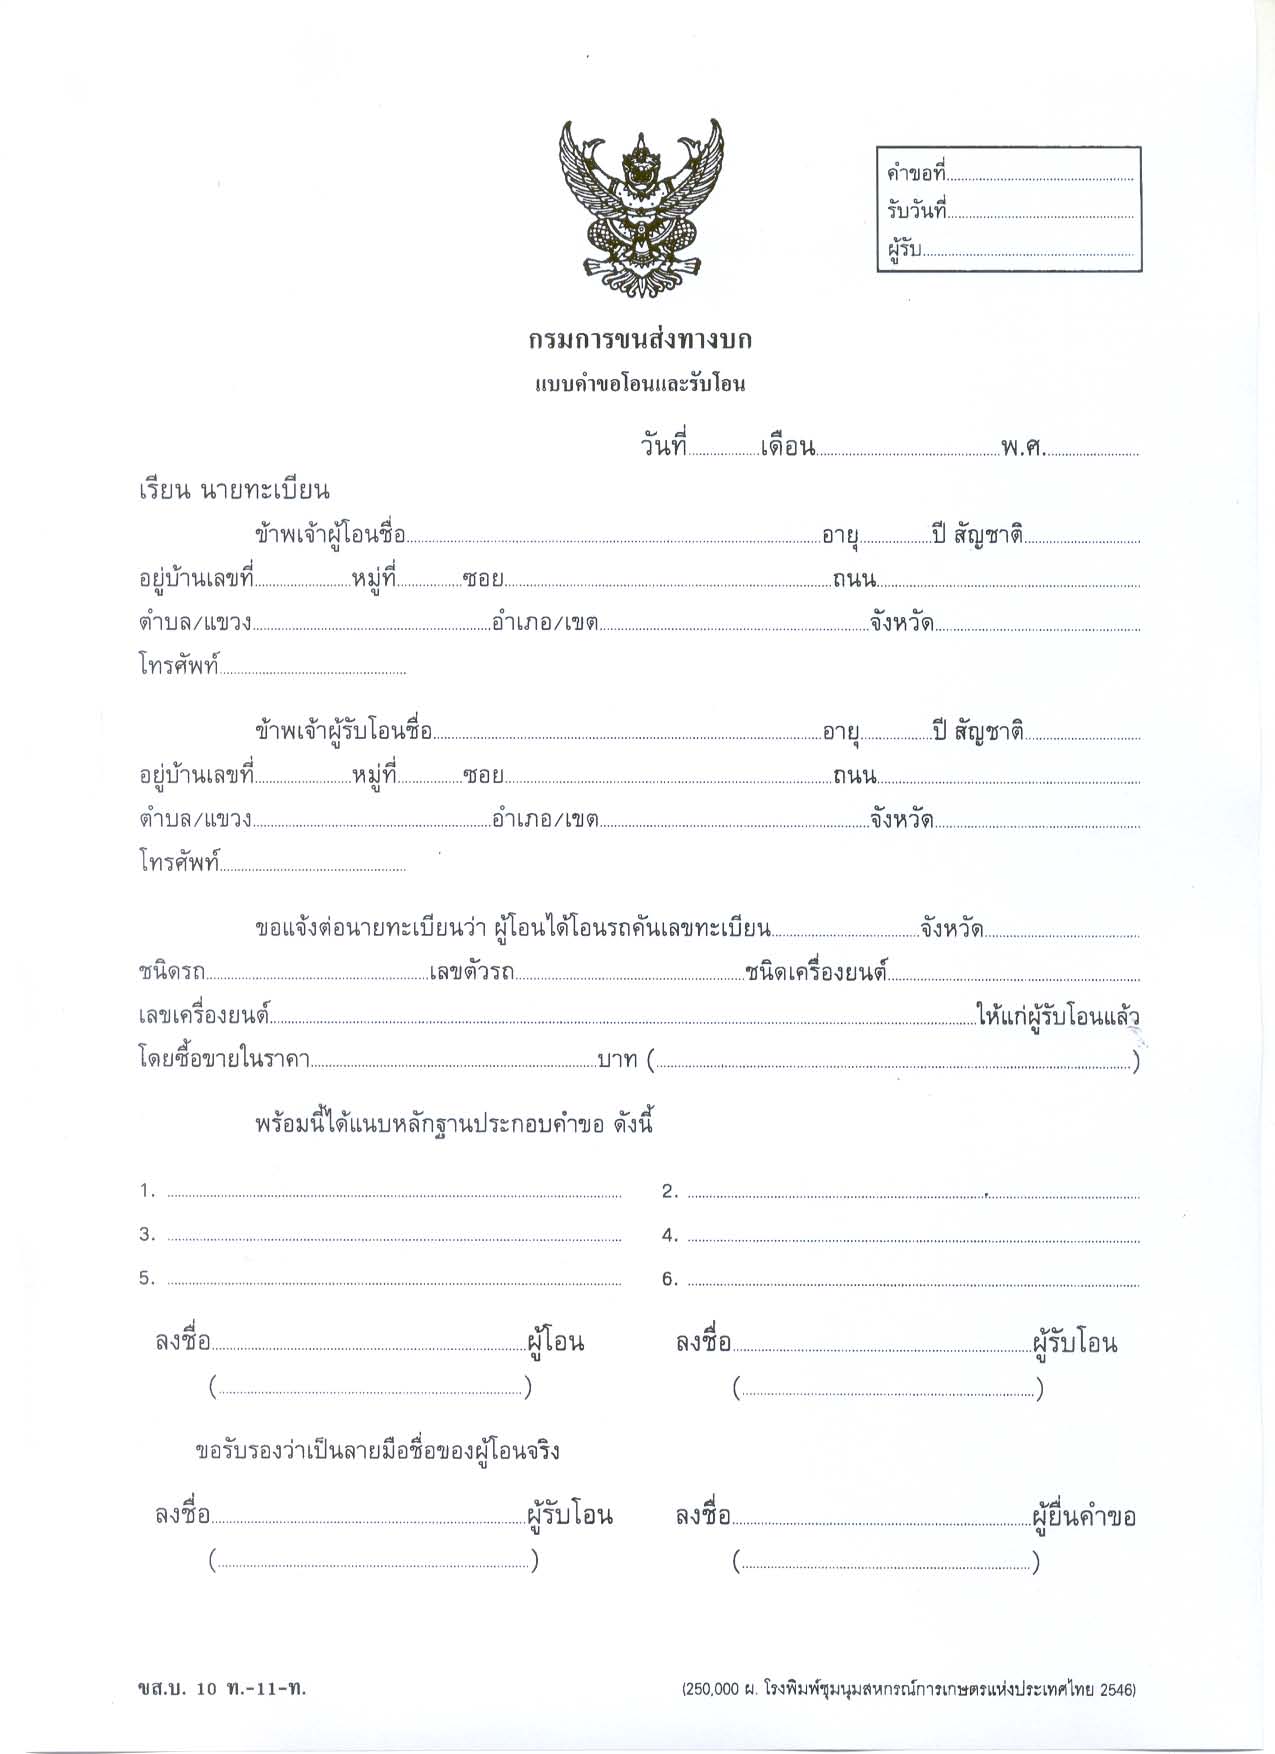 คำขอที่........................................
รับวันที่........................................
ผู้รับ........................................
กรมการขนส่งทางบก
แบบคำขอโอนและรับโอน
วันที่..............เดือน....................................พ.ศ...................
เรียน นายทะเบียน
ข้าพเจ้าผู้โอนชื่อ........................................อายุ..............ปี สัญชาติ....................
อยู่บ้านเลขที่....................หมู่ที่..............ซอย........................................ถนน........................................
ตำบล/แขวง........................................อำเภอ/เขต........................................จังหวัด........................................
โทรศัพท์........................................
ข้าพเจ้าผู้รับโอนชื่อ........................................อายุ..............ปี สัญชาติ....................
อยู่บ้านเลขที่....................หมู่ที่..............ซอย........................................ถนน........................................
ตำบล/แขวง........................................อำเภอ/เขต........................................จังหวัด........................................
โทรศัพท์........................................
ขอแจ้งต่อนายทะเบียนว่า ผู้โอนได้โอนรถคันเลขทะเบียน..............................จังหวัด..............................
ชนิดรถ........................................เลขตัวรถ........................................ชนิดเครื่องยนต์........................................
เลขเครื่องยนต์........................................ให้แก่ผู้รับโอนแล้ว
โดยซื้อขายในราคา........................................บาท (........................................)
พร้อมนี้ได้แนบหลักฐานประกอบคำขอ ดังนี้
1. ........................................ 2. ........................................
3. ........................................ 4. ........................................
5. ........................................ 6. ........................................
ลงชื่อ........................................ผู้โอน ลงชื่อ........................................ผู้รับโอน
(........................................) (........................................)
ขอรับรองว่าเป็นลายมือชื่อของผู้โอนจริง
ลงชื่อ........................................ผู้รับโอน ลงชื่อ........................................ผู้ยื่นคำขอ
(........................................) (........................................)
ขส.บ. 10 ท.-11-ท. (250,000 ผ. โรงพิมพ์ชุมนุมสหกรณ์การเกษตรแห่งประเทศไทย 2546)